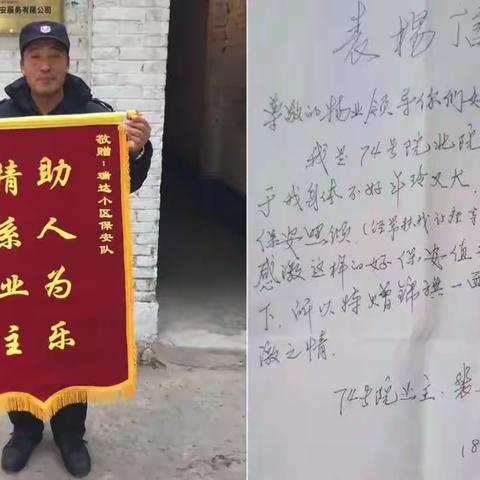 安服务有限公司
敬赠：瑞达小区保安队
助人为乐
情系业主
表扬信
尊敬的物业领导你们好
我是74号院北院
于我身体不好年龄又大
保安照顾.(经常扶我让座等
感激这样的好保安值
下.所以特赠锦旗一面
激之情.
74号院业主.裴
18